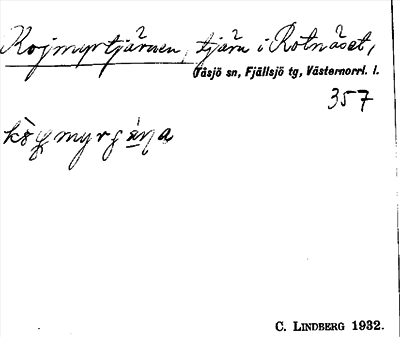 Kojmyrtjärnen, tjärn i Rotnäset,
Tåsjö sn, Fjällsjö tg, Västernorrl. l.
357
C. LINDBERG 1932.